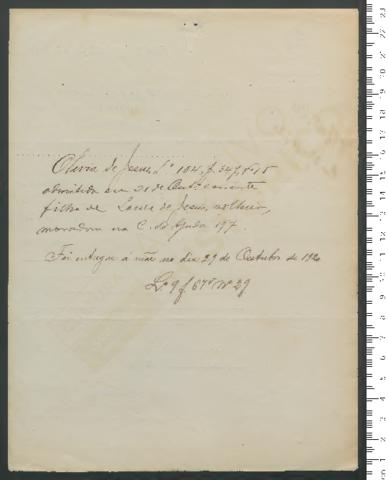 Olivia de Jesus, Lº 104, f. 347, nº 15
admitida em 21 de Outº corrente
filha de Laura de Jesus, solteira,
moradora na C. da Ajuda 197.
Foi entregue á mãe no dia 29 de Outubro de 192
Lº 9 f 67v Nº 29